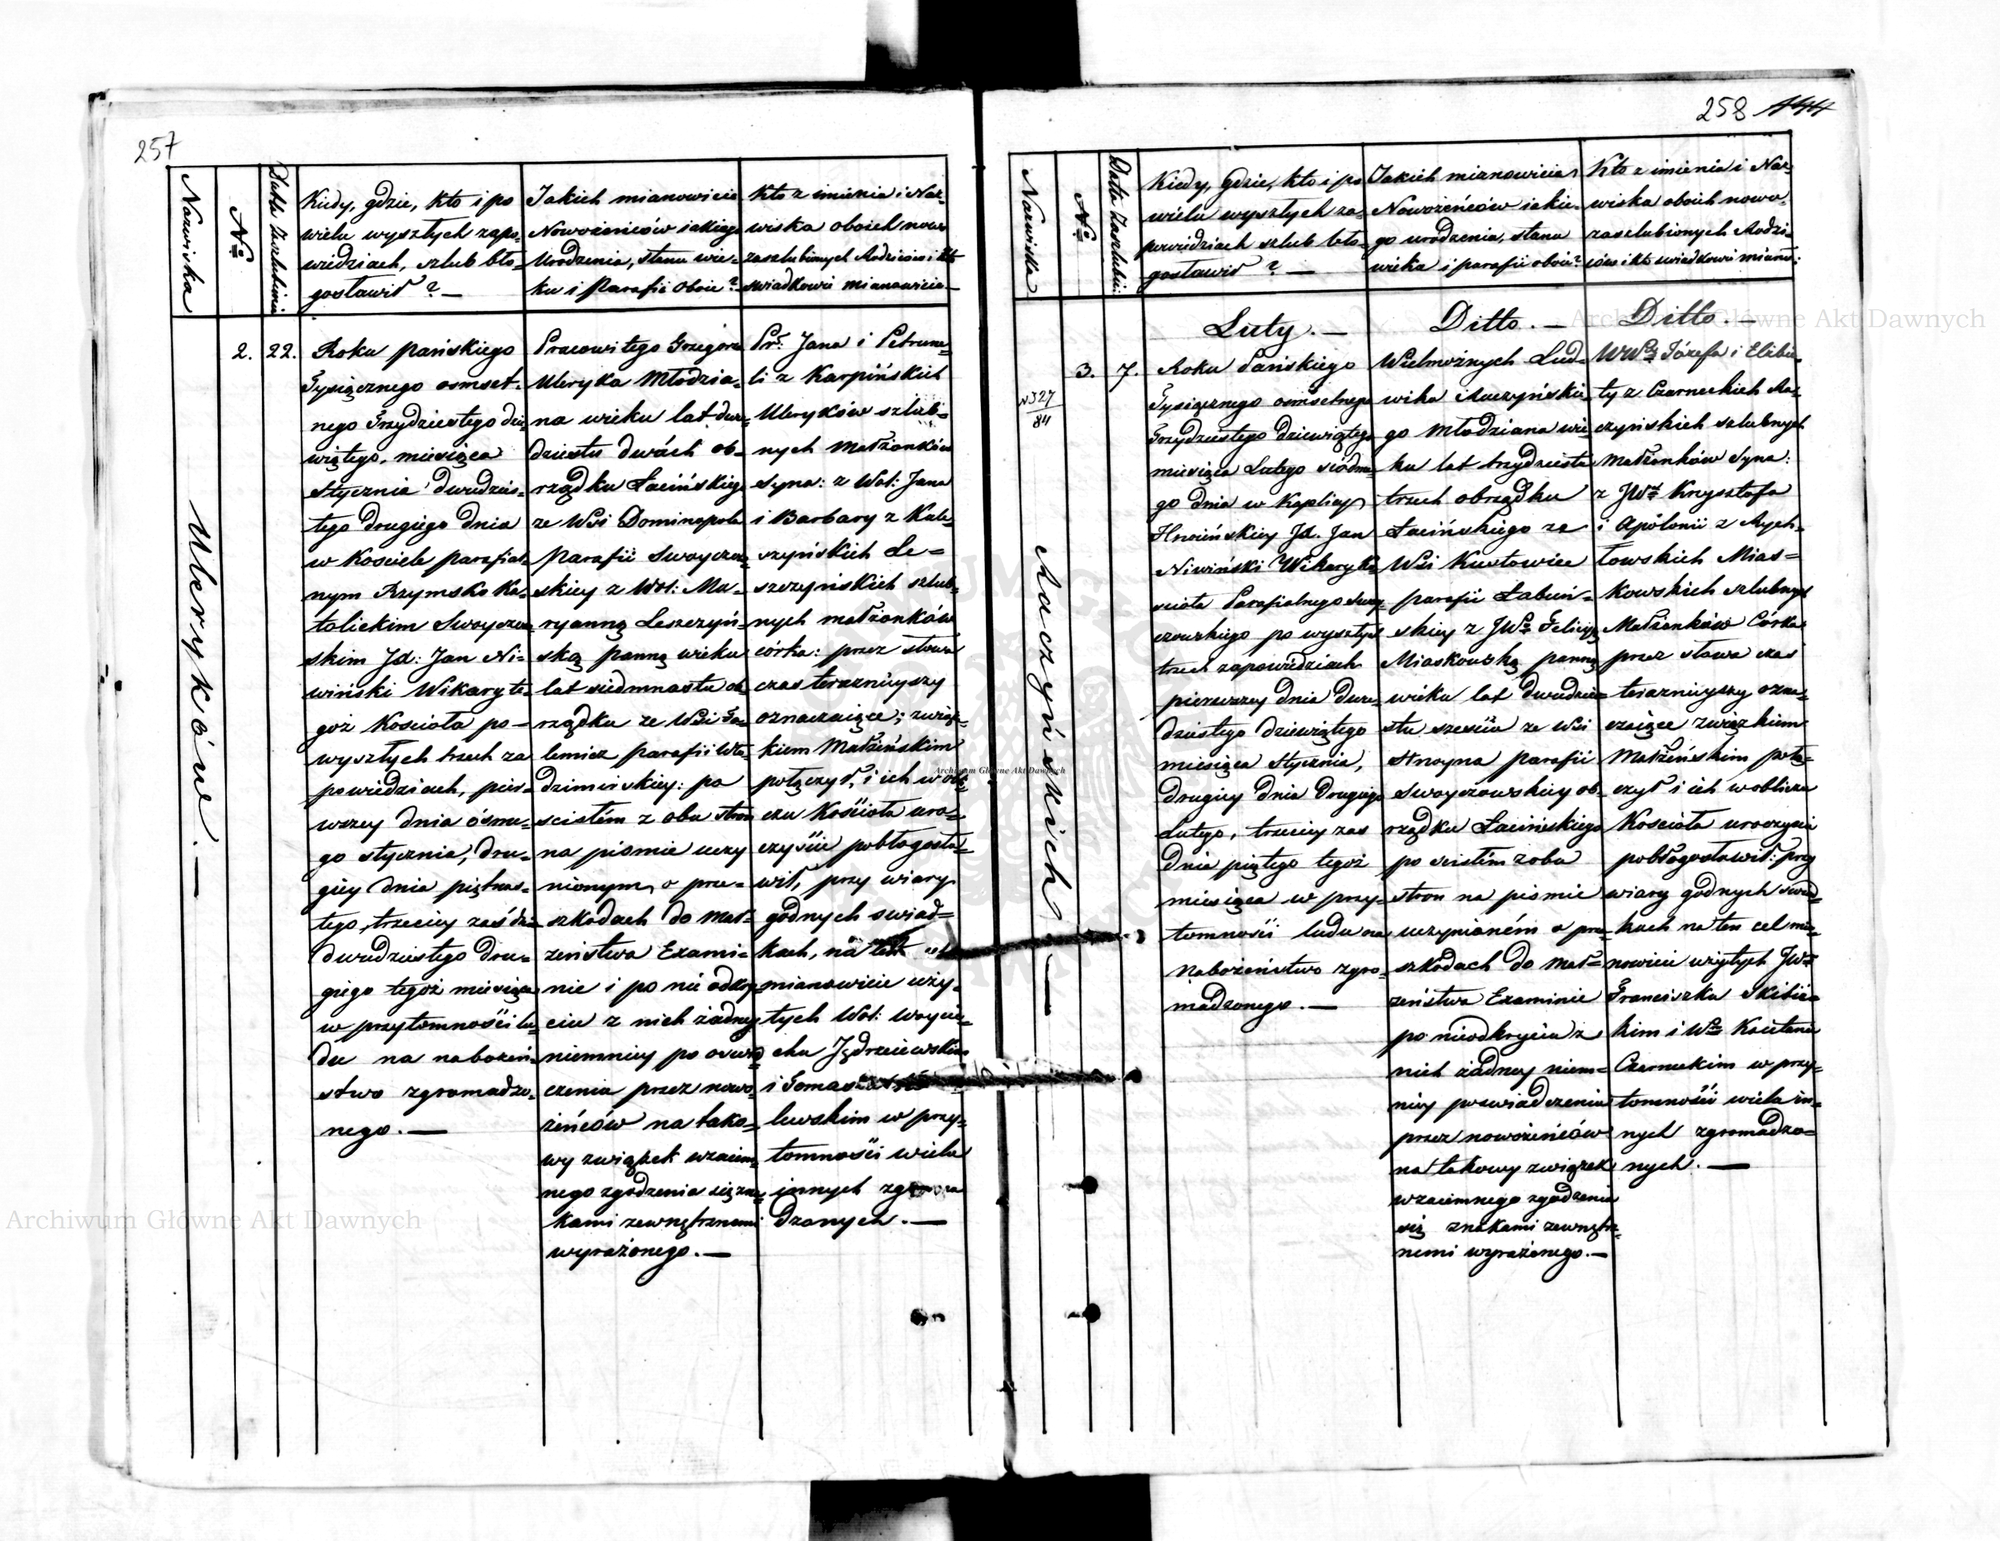 257
Nazwiska
№
Datta Zaszlubinii
Kiedy, gdzie, kto i po
wielu wyszłych zapo-
wiedziach, szlub bło-
gosławił? —
Jakich mianowicie
Nowożeńców jakiego
Urodzenia, stanu wie-
ku i Parafii oboie?
Kto z imienia i Naz-
wiska oboich nowo
zaszlubionych Rodziców i kto
swiadkowie mianowicie —
Uleryków. —
2.
22.
Roku pańskiego
Tysiącznego osmset-
nego Trzydziestego dzie-
wiątego, miesiąca
Stycznia dwudzies-
tego drugiego dnia
w Kosciele parafial-
nym Rzymsko Ka-
tolickim Swoyczow-
skim Jd: Jan Ni-
wiński Wikary te-
goż Kościoła po-
wyszłych trzech za
powiedziach, pier-
wszey dnia ósme-
go stycznia, dru-
giey dnia piętnas-
tego, trzeciey zaś dnia
dwudziestego dru-
giego tegoż miesiąca
w przytomności lu-
du na nabożeń-
stwo zgromadzo-
nego. —
Pracowitego Grzegorza
Uleryka Młodzia-
na wieku lat dwu-
dziestu dwóch ob-
rządku Łacińskiego
ze Wsi Dominopola
parafii Swoyczow-
skiey z Wol: Ma-
ryanną Leszczyń-
ską panną wieku
lat siedmnastu ob-
rządku ze Wsi
parafii Wło-
dzimirskiey: po
scisłém z obu stron
na piśmie uczy
nionym, o prze-
szkodach do mał-
żeństwa Exami-
nie i po nie odkry-
ciu z nich żadney
niemniey po oswiad-
czenia przez nowo-
żeńców na tako-
wy związek wzaiem-
nego zgodzenia się zna-
kami zewnętrznemi
wyrażonego. —
Pr: Jana i Petrune-
li z Karpińskich
Uleryków szlub-
nych Małżonków
syna: z Wol: Jana
i Barbary z Kule-
szyńskich Le-
szczyńskich szlub-
nych małżonków
córka: przez słowa
czas teraznieyszy
oznaczaiące; związ-
kiem Małżeńskim
połączył, i ich w obli-
czu Kościoła uro-
czyście pobłogosła-
wił, przy wiary
godnych swiad-
kach, na ten cel
mianowicie uży-
tych Wol: Woycie-
chu Jędrzeiewskim
i Tomaszu
lewskim w przy-
tomności wielu
innych zgroma
dzonych. —
258 144
Nazwiska
№
Datta Zaszlubii:
Kiedy, gdzie, kto i po
wielu wyszłych za-
powiedziach szlub bło-
gosławił? —
Jakich mianowicie
Nowożeńców iakie-
go urodzenia, stanu
wieku i parafii oboie?
Kto z imienia i Naz-
wiska oboich nowo-
zaszlubionych Rodzi-
ców i kto swiadkowie mianow:
Luty. —
Ditto. —
Ditto. —
Raczyńskich —
3.
7.
N 327
84
Roku Pańskiego
Tysiącznego osmsetnego
Trzydziestego dziewiątego
miesiąca Lutego siódme-
go dnia w Kaplicy
Jd. Jan
Niwiński Wikary Ko-
scioła Parafialnego Swoy-
czowskiego po wyszłych
trzech zapowiedziach
pierwszey dnia dwu-
dziestego dziewiątego
miesiąca Stycznia,
drugiey dnia Drugiego
Lutego, trzeciey zaś
dnia piątego tegoż
miesiąca w przy-
tomności ludu na
Nabożeństwo zgro-
madzonego. —
Wielmożnych Lud-
wika Raczyńskie-
go Młodziana wie-
ku lat trzydziestu
trzech obrządku
Łacińskiego ze
Wsi Kustowiec
parafii Łabuń-
skiey z JWą Felicyą
Miaskowską panną
wieku lat dwudzie-
stu sześciu ze Wsi
parafii
Swoyczowskiey ob-
rządku Łacińskiego
po scisłém z obu
stron na piśmie
uczynioném o prze-
szkodach do Mał-
żeństwa Examinie
po nieodkryciu z
nich żadney niem-
niey poswiadczeniu
przez nowożeńców
na takowy związek
wzaiemnego zgodzenia
się znakami zewnętrz-
nemi wyrażonego. —
WWch Józefa i Elżbie-
ty z Czarneckich Ra-
czyńskich szlubnych
Małżonków Syna:
z JWch Krzysztofa
i Apolonii z Rych-
łowskich Mias-
kowskich szlubnych
Małżonków Córka
przez słowa czas
teraznieyszy ozna-
czaiące związkiem
Małżeńskim połą-
czył i ich w obliczu
Kościoła uroczyście
pobłogosławił: przy
wiary godnych swiad-
kach na ten cel mia-
nowicie użytych JWch
Franciszku Skibic-
kim i Wm Kaietanu
Czarneckim w przy-
tomności wielu in-
nych zgromadzo-
nych. —
Archiwum Główne Akt Dawnych
Archiwum Główne Akt Dawnych
Archiwum Główne Akt Dawnych